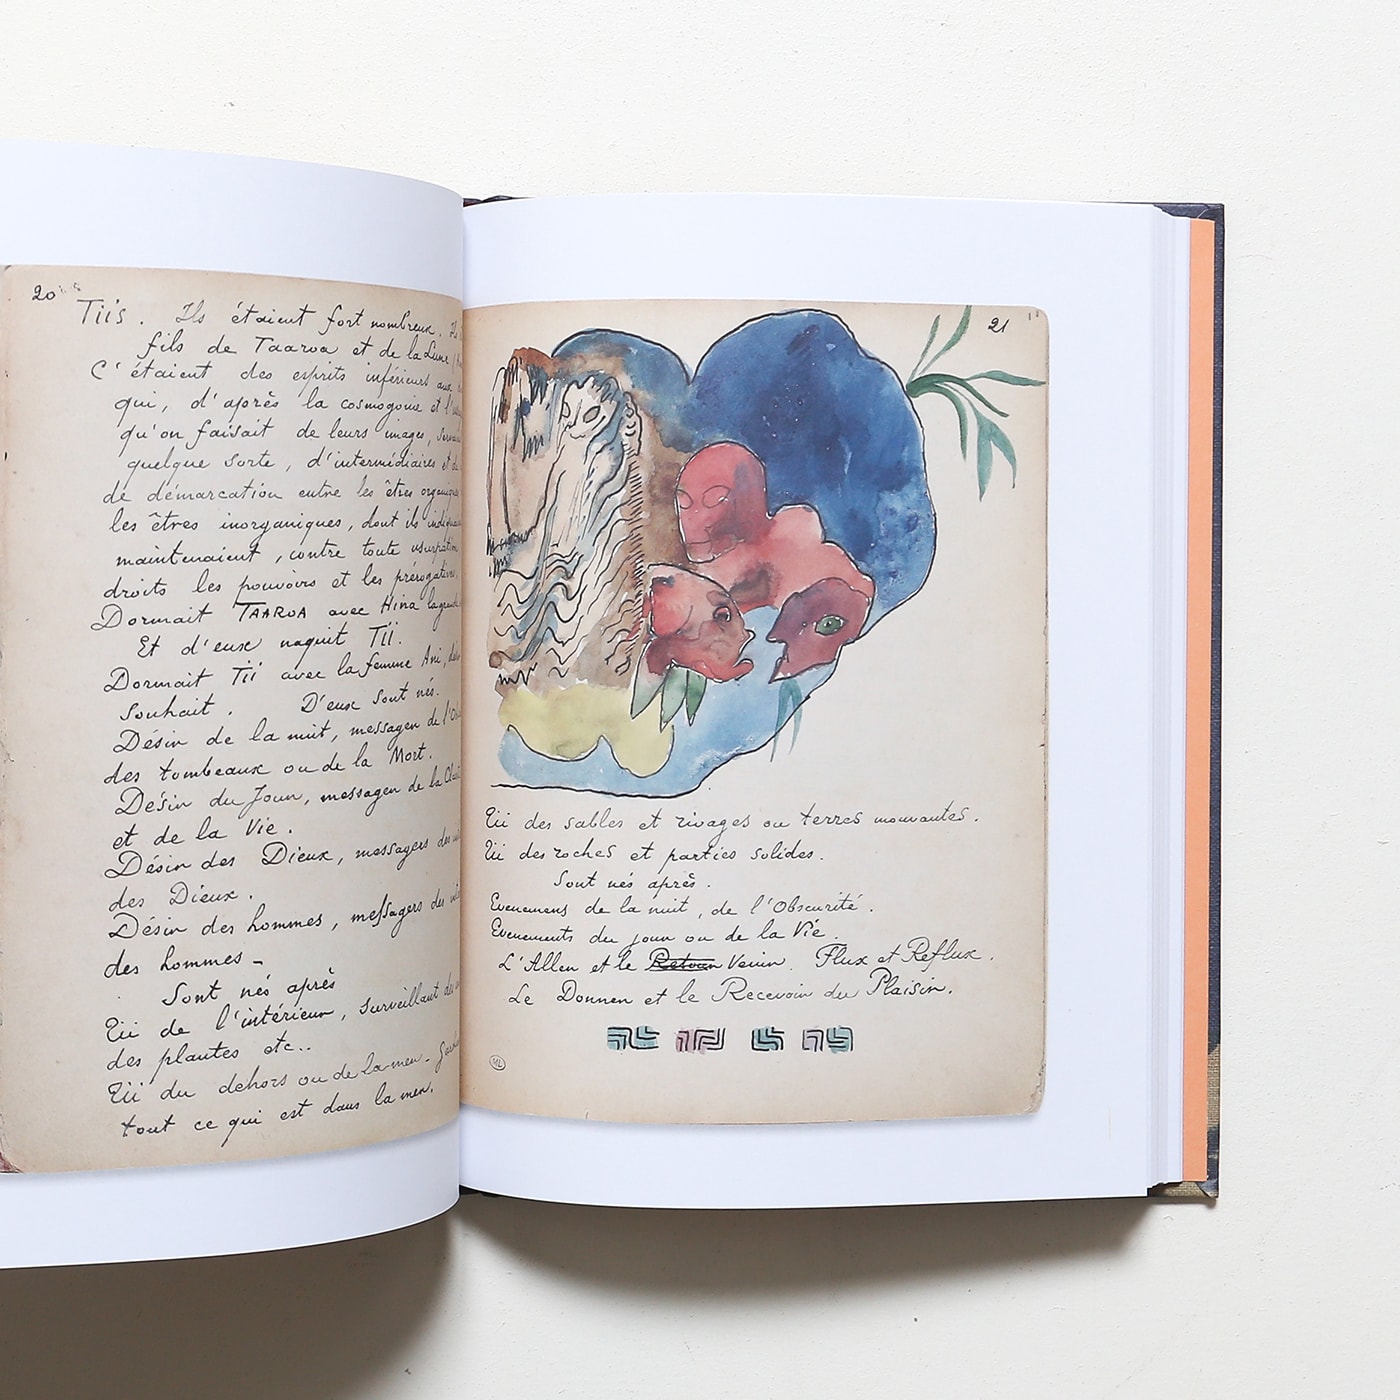 20
Tiis. Ils étaient fort nombreux.
fils de Taaroa et de la Lune
C'étaient des esprits inférieurs aux
qui, d'après la cosmogonie et
qu'on faisait de leurs images,
quelque sorte, d'intermédiaires et de
de démarcation entre les êtres organiques
les êtres inorganiques, dont ils
maintenaient, contre toute usurpation
droits les pouvoirs et les prérogatives.
Dormait TAAROA avec Hina la grande
Et d'eux naquit Tii.
Dormait Tii avec la femme Ani,
Souhait. D'eux sont nés.
Désir de la nuit, messager de
des tombeaux ou de la Mort.
Désir du Jour, messager de la
et de la Vie.
Désir des Dieux, messagers des
des Dieux.
Désir des hommes, messagers des
des hommes -
Sont nés après
Tii de l'intérieur, surveillant
des plantes etc..
Tii du dehors ou de la mer.
tout ce qui est dans la mer.
21
Tii des sables et rivages ou terres mouvantes.
Tii des roches et parties solides.
Sont nés après.
Evenemens de la nuit, de l'Obscurité.
Evenements du jour ou de la Vie.
L'Aller et le Retour Venir. Flux et Reflux.
Le Donner et le Recevoir du Plaisir.
ML